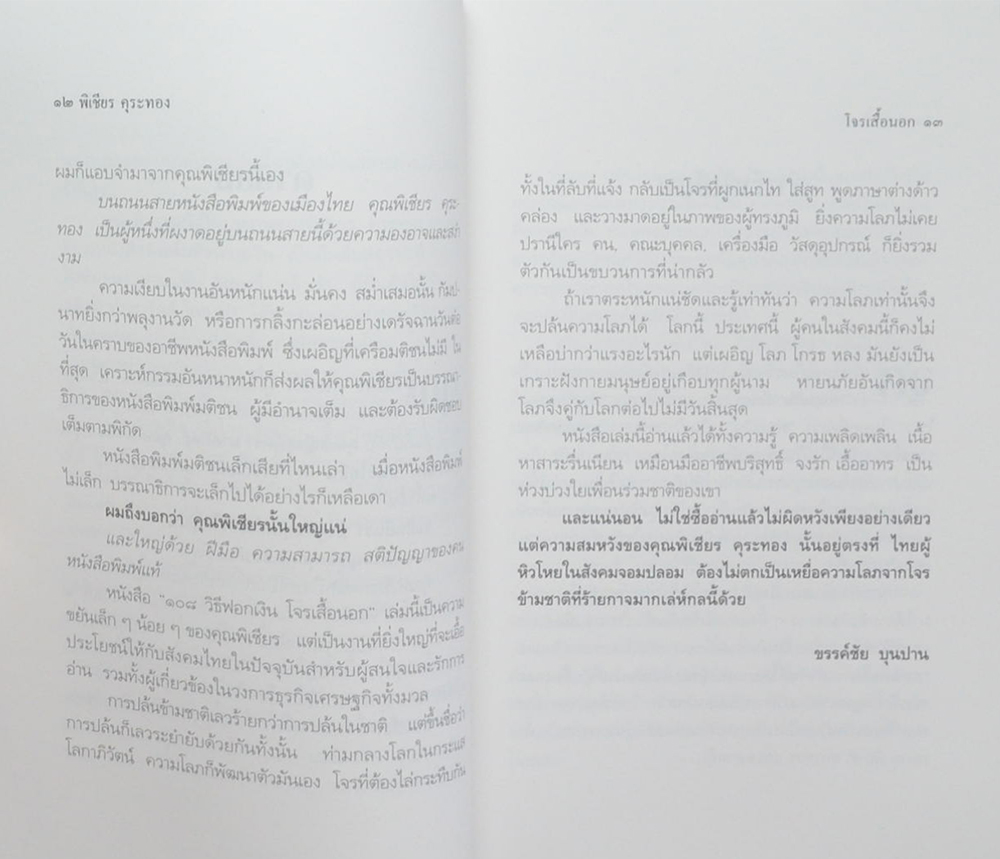 ๑๒ พิเชียร คุระทอง
ผมก็แอบจำมาจากคุณพิเชียรนี้เอง
บนถนนสายหนังสือพิมพ์ของเมืองไทย คุณพิเชียร คุระ-
ทอง เป็นผู้หนึ่งที่ผงาดอยู่บนถนนสายนี้ด้วยความองอาจและสง่า
งาม
ความเงียบในงานอันหนักแน่น มั่นคง สม่ำเสมอนั้น กัมป-
นาทยิ่งกว่าพลุงานวัด หรือการกลิ้งกะล่อนอย่างเดรัจฉานวันต่อ
วันในคราบของอาชีพหนังสือพิมพ์ ซึ่งเผอิญที่เครือมติชนไม่มี ใน
ที่สุด เคราะห์กรรมอันหนาหนักก็ส่งผลให้คุณพิเชียรเป็นบรรณา-
ธิการของหนังสือพิมพ์มติชน ผู้มีอำนาจเต็ม และต้องรับผิดชอบ
เต็มตามพิกัด
หนังสือพิมพ์มติชนเล็กเสียที่ไหนเล่า เมื่อหนังสือพิมพ์
ไม่เล็ก บรรณาธิการจะเล็กไปได้อย่างไรก็เหลือเดา
ผมถึงบอกว่า คุณพิเชียรนั้นใหญ่แน่
และใหญ่ด้วย ฝีมือ ความสามารถ สติปัญญาของคน
หนังสือพิมพ์แท้
หนังสือ "๑๐๘ วิธีฟอกเงิน โจรเสื้อนอก" เล่มนี้เป็นความ
ขยันเล็ก ๆ น้อย ๆ ของคุณพิเชียร แต่เป็นงานที่ยิ่งใหญ่ที่จะเอื้อ
ประโยชน์ให้กับสังคมไทยในปัจจุบันสำหรับผู้สนใจและรักการ
อ่าน รวมทั้งผู้เกี่ยวข้องในวงการธุรกิจเศรษฐกิจทั้งมวล
การปล้นข้ามชาติเลวร้ายกว่าการปล้นในชาติ แต่ขึ้นชื่อว่า
การปล้นก็เลวระยำยับด้วยกันทั้งนั้น ท่ามกลางโลกในกระแส
โลกาภิวัตน์ ความโลภก็พัฒนาตัวมันเอง โจรที่ต้องไล่กระทืบกัน
โจรเสื้อนอก ๑๓
ทั้งในที่ลับที่แจ้ง กลับเป็นโจรที่ผูกเนกไท ใส่สูท พูดภาษาต่างด้าว
คล่อง และวางมาดอยู่ในภาพของผู้ทรงภูมิ ยิ่งความโลภไม่เคย
ปรานีใคร คน. คณะบุคคล. เครื่องมือ วัสดุอุปกรณ์ ก็ยิ่งรวม
ตัวกันเป็นขบวนการที่น่ากลัว
ถ้าเราตระหนักแน่ชัดและรู้เท่าทันว่า ความโลภเท่านั้นจึง
จะปล้นความโลภได้ โลกนี้ ประเทศนี้ ผู้คนในสังคมนี้ก็คงไม่
เหลือบ่ากว่าแรงอะไรนัก แต่เผอิญ โลภ โกรธ หลง มันยังเป็น
เกราะฝังกายมนุษย์อยู่เกือบทุกผู้นาม หายนภัยอันเกิดจาก
โลภจึงคู่กับโลกต่อไปไม่มีวันสิ้นสุด
หนังสือเล่มนี้อ่านแล้วได้ทั้งความรู้ ความเพลิดเพลิน เนื้อ
หาสาระรื่นเนียน เหมือนมืออาชีพบริสุทธิ์ จงรัก เอื้ออาทร เป็น
ห่วงบ่วงใยเพื่อนร่วมชาติของเขา
และแน่นอน ไม่ใช่ซื้ออ่านแล้วไม่ผิดหวังเพียงอย่างเดียว
แต่ความสมหวังของคุณพิเชียร คุระทอง นั้นอยู่ตรงที่ ไทยผู้
หิวโหยในสังคมจอมปลอม ต้องไม่ตกเป็นเหยื่อความโลภจากโจร
ข้ามชาติที่ร้ายกาจมากเล่ห์กลนี้ด้วย
ขรรค์ชัย บุนปาน